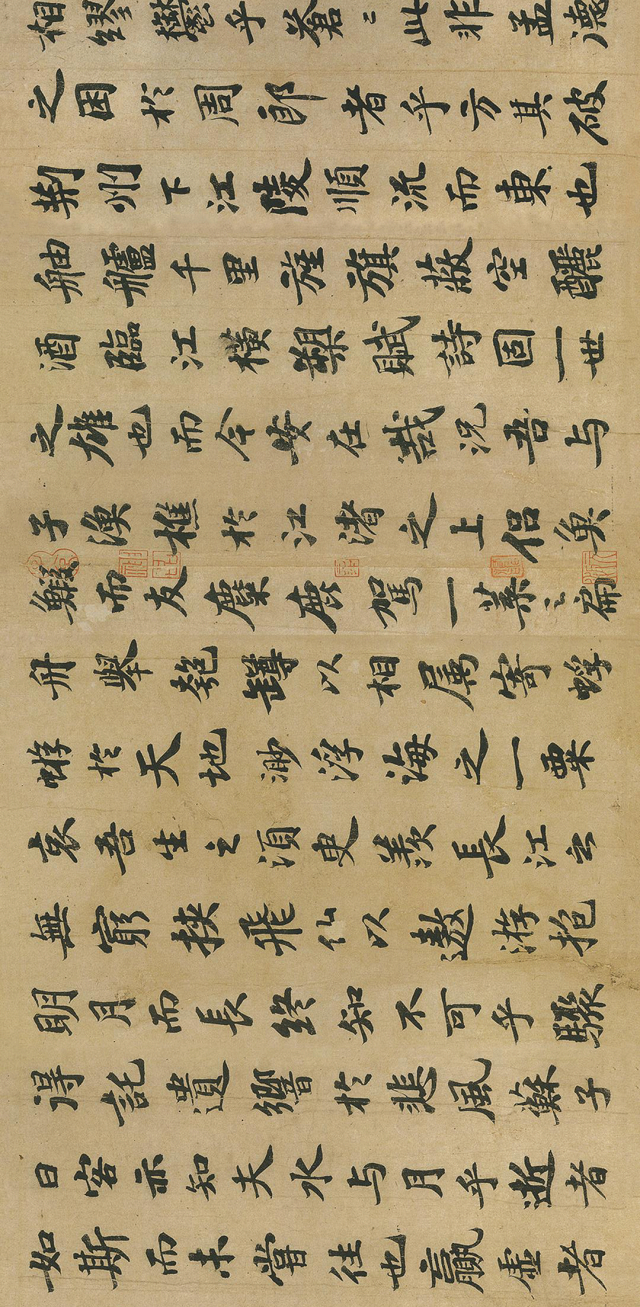 相繆欝乎蒼〻此非孟德
之困於周郎者乎方其破
荆州下江陵順流而東也
舳艫千里旌旗蔽空釃
酒臨江橫槊賦詩固一世
之雄也而今安在哉況吾与
子漁樵於江渚之上侣魚
鰕而友麋鹿駕一葉之扁
舟舉匏罇以相属寄蜉
蝣於天地渺浮海之一粟
哀吾生之須臾羨長江之
無窮挾飛仙以遨游抱
明月而長終知不可乎驟
得託遺響於悲風蘇子
曰客亦知夫水与月乎逝者
如斯而未嘗往也贏虛者